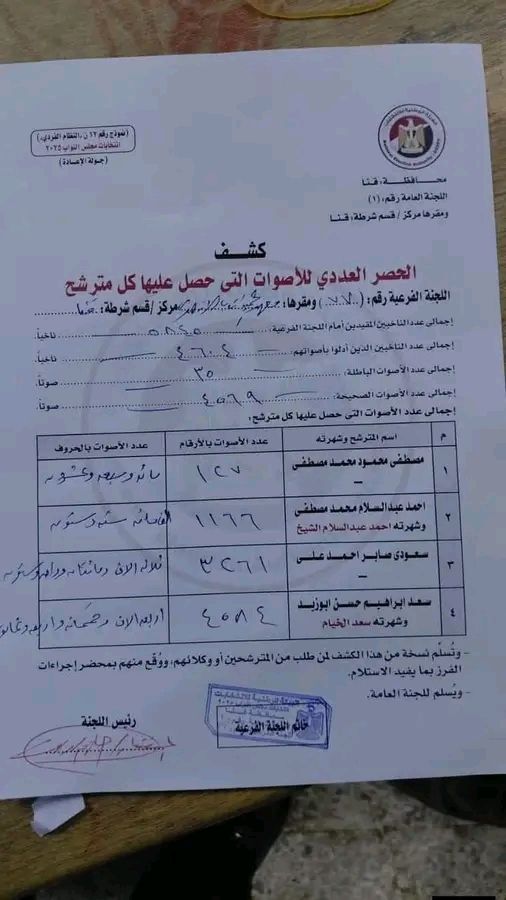 (نموذج رقم ١٢ ن، النظام الفردي،)
انتخابات مجلس النواب ٢٠٢٥
(جولة الإعادة)
محافظة: قنا
اللجنة العامة رقم: (١)
ومقرها مركز / قسم شرطة: قنا
كشف
الحصر العددي للأصوات التى حصل عليها كل مترشح
اللجنة الفرعية رقم: (٧٧) ومقرها: مركز/قسم شرطة: قنا
إجمالى عدد الناخبين المقيدين أمام اللجنة الفرعية: ٥٨٤٥ ناخباً.
إجمالى عدد الناخبين الذين أدلوا بأصواتهم: ٤٦٠٤ ناخباً.
إجمالى عدد الأصوات الباطلة: ٣٥ صوتاً.
إجمالى عدد الأصوات الصحيحة: ٤٥٦٩ صوتاً.
إجمالى عدد الأصوات التى حصل عليها كل مترشح:
م اسم المترشح وشهرته عدد الأصوات بالأرقام عدد الأصوات بالحروف
١ مصطفى محمود محمد مصطفى ١٢٧ مائة وسبعة وعشرون
–
٢ احمد عبدالسلام محمد مصطفى ١١٦٦ ستة وستون
وشهرته احمد عبدالسلام الشيخ
٣ سعودى صابر احمد على ٣٢٦١ ثلاثة الاف ومائتان وواحد وستون
–
٤ سعد ابراهيم حسن ابوزيد ٤٥٨٤ اربعة الاف وخمسمائة واربعة وثمانون
وشهرته سعد الخيام
- وتُسلّم نسخة من هذا الكشف لمن طلب من المترشحين أو وكلائهم، ووُقع منهم بمحضر إجراءات
الفرز بما يفيد الاستلام.
- ويُسلم للجنة العامة.
خاتم اللجنة الفرعية
رئيس اللجنة